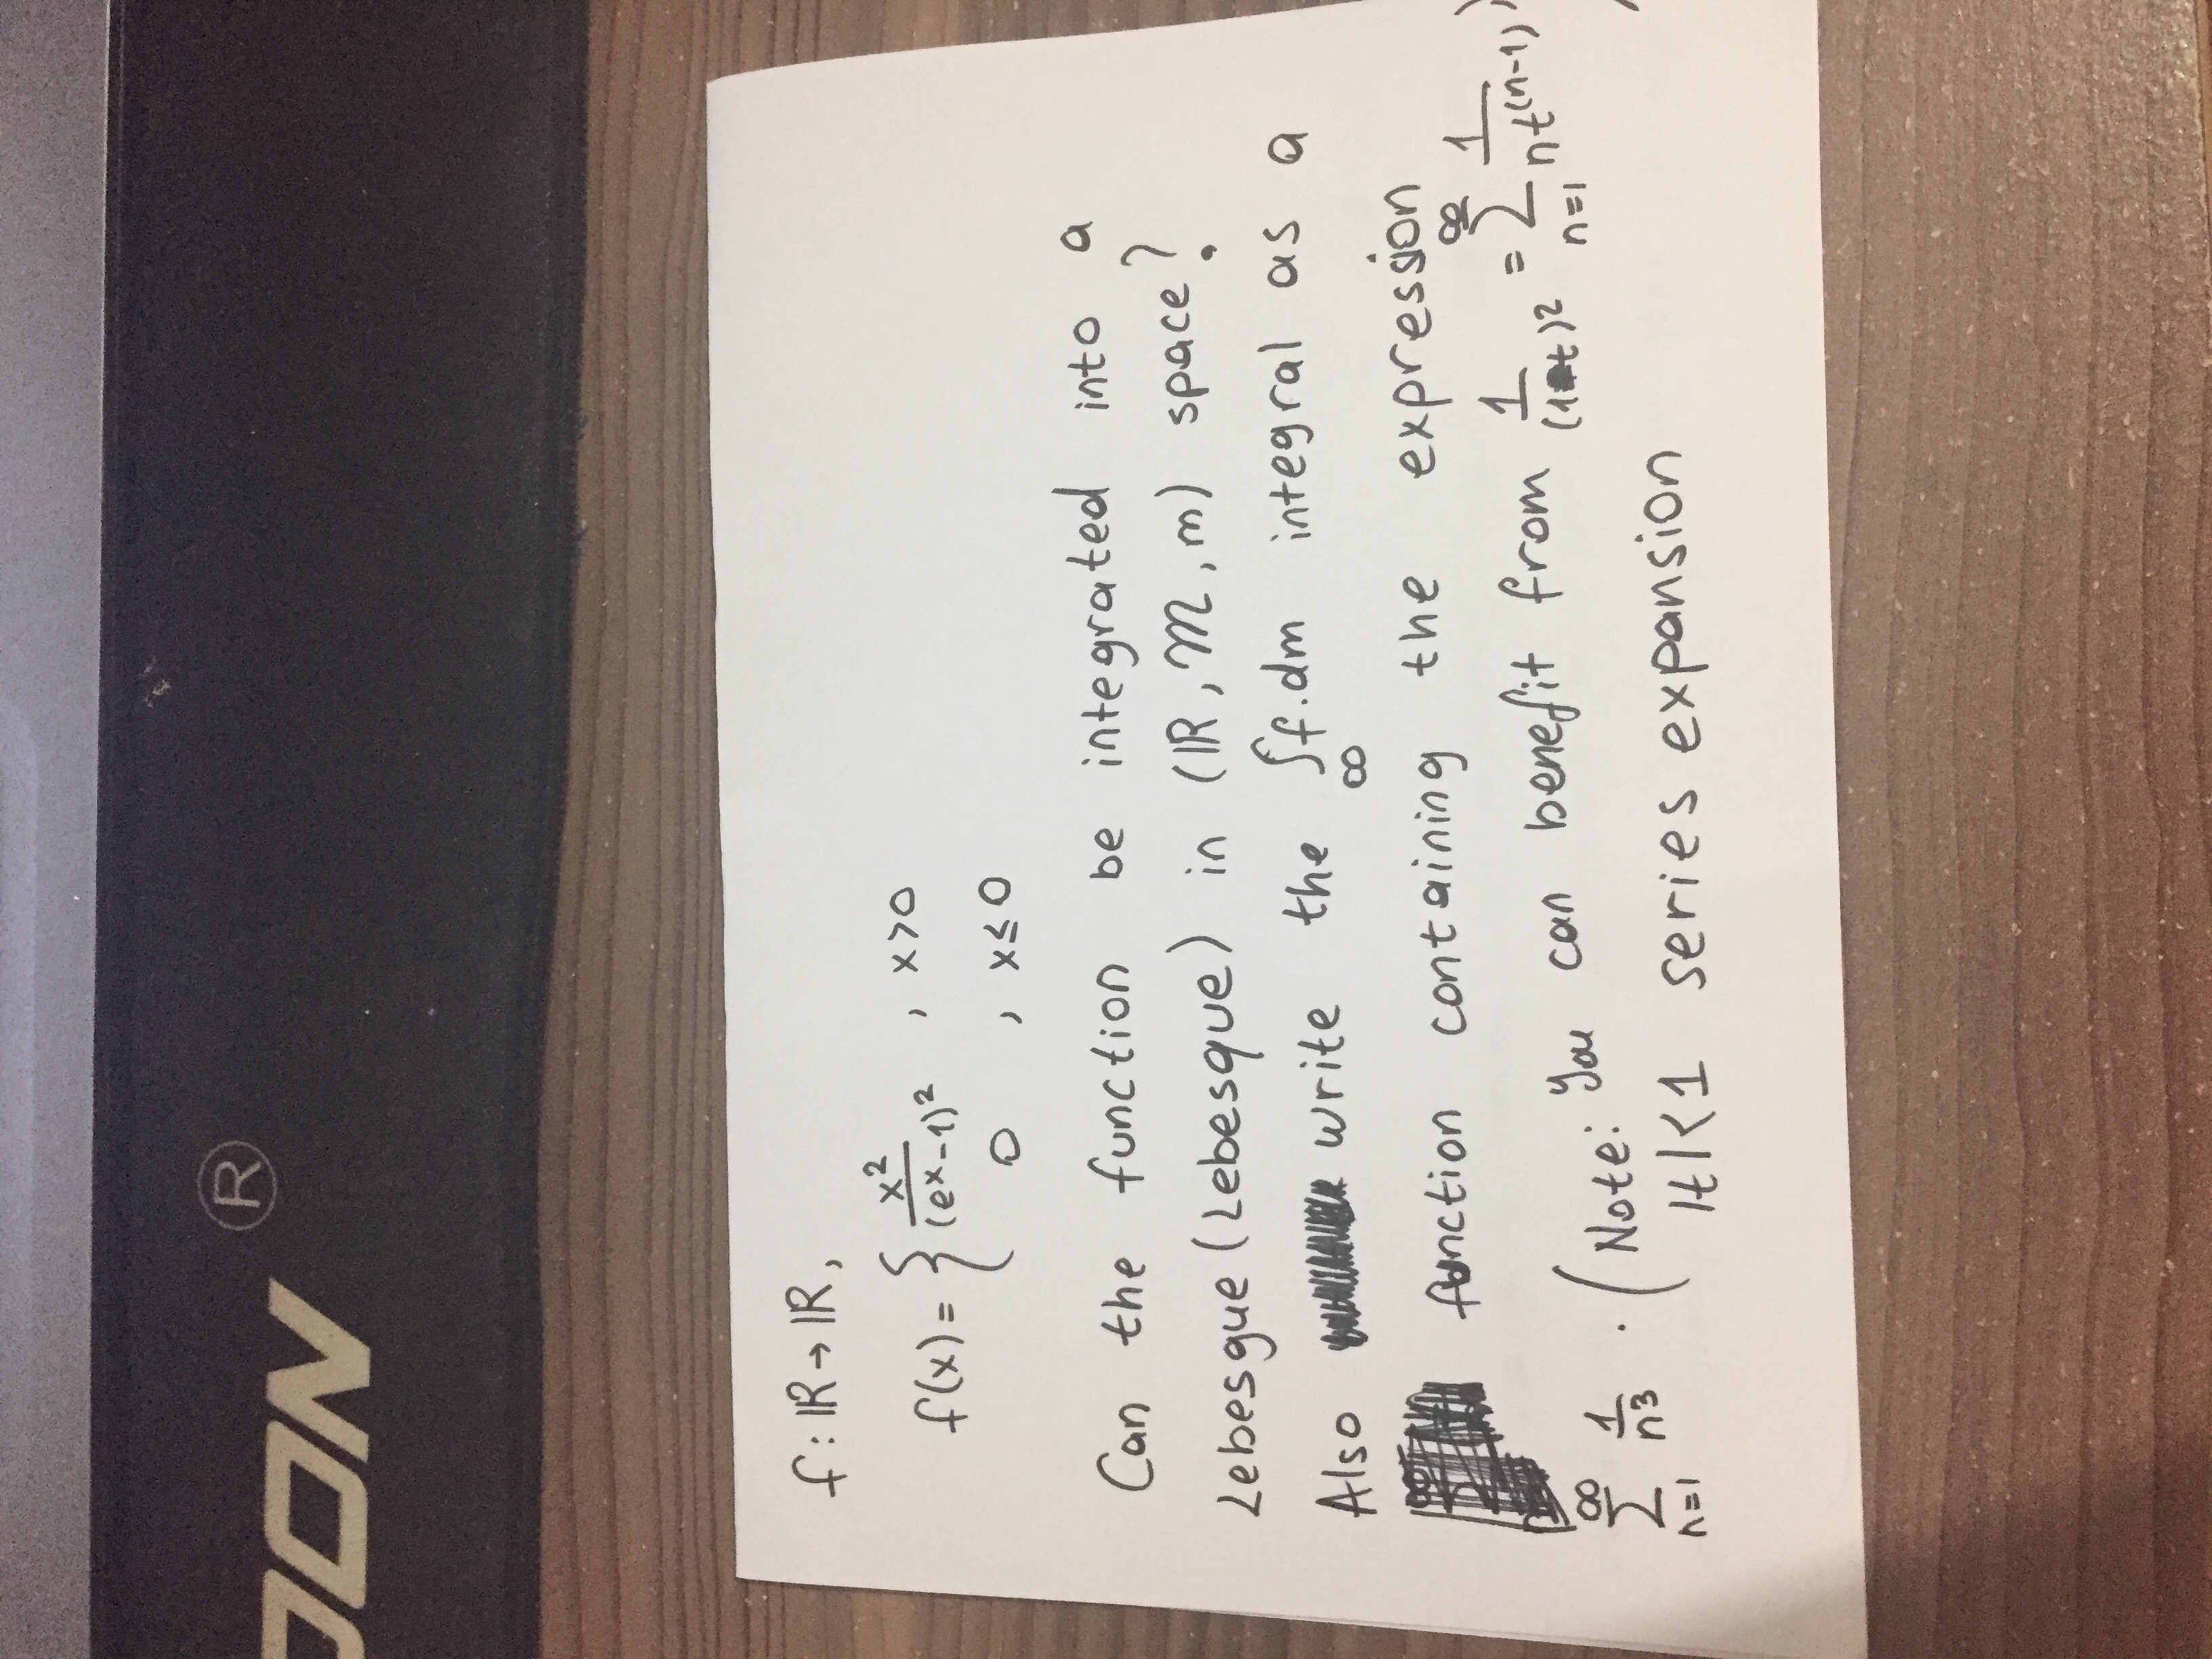 OON ®
f : ℝ → ℝ,
f(x) = { x²/(eˣ-1)² , x>0
0 , x≤0
Can the function be integrated into a
Lebesgue (Lebesque) in (ℝ, 𝓜, m) space?
Also write the ∫f.dm integral as a
function containing the expression
∑_{n=1}^{∞} 1/n³ . (Note: You can benefit from 1/(1-t)² = ∑_{n=1}^{∞} 1/nt⁽ⁿ⁻¹⁾ )
|t|<1 series expansion )